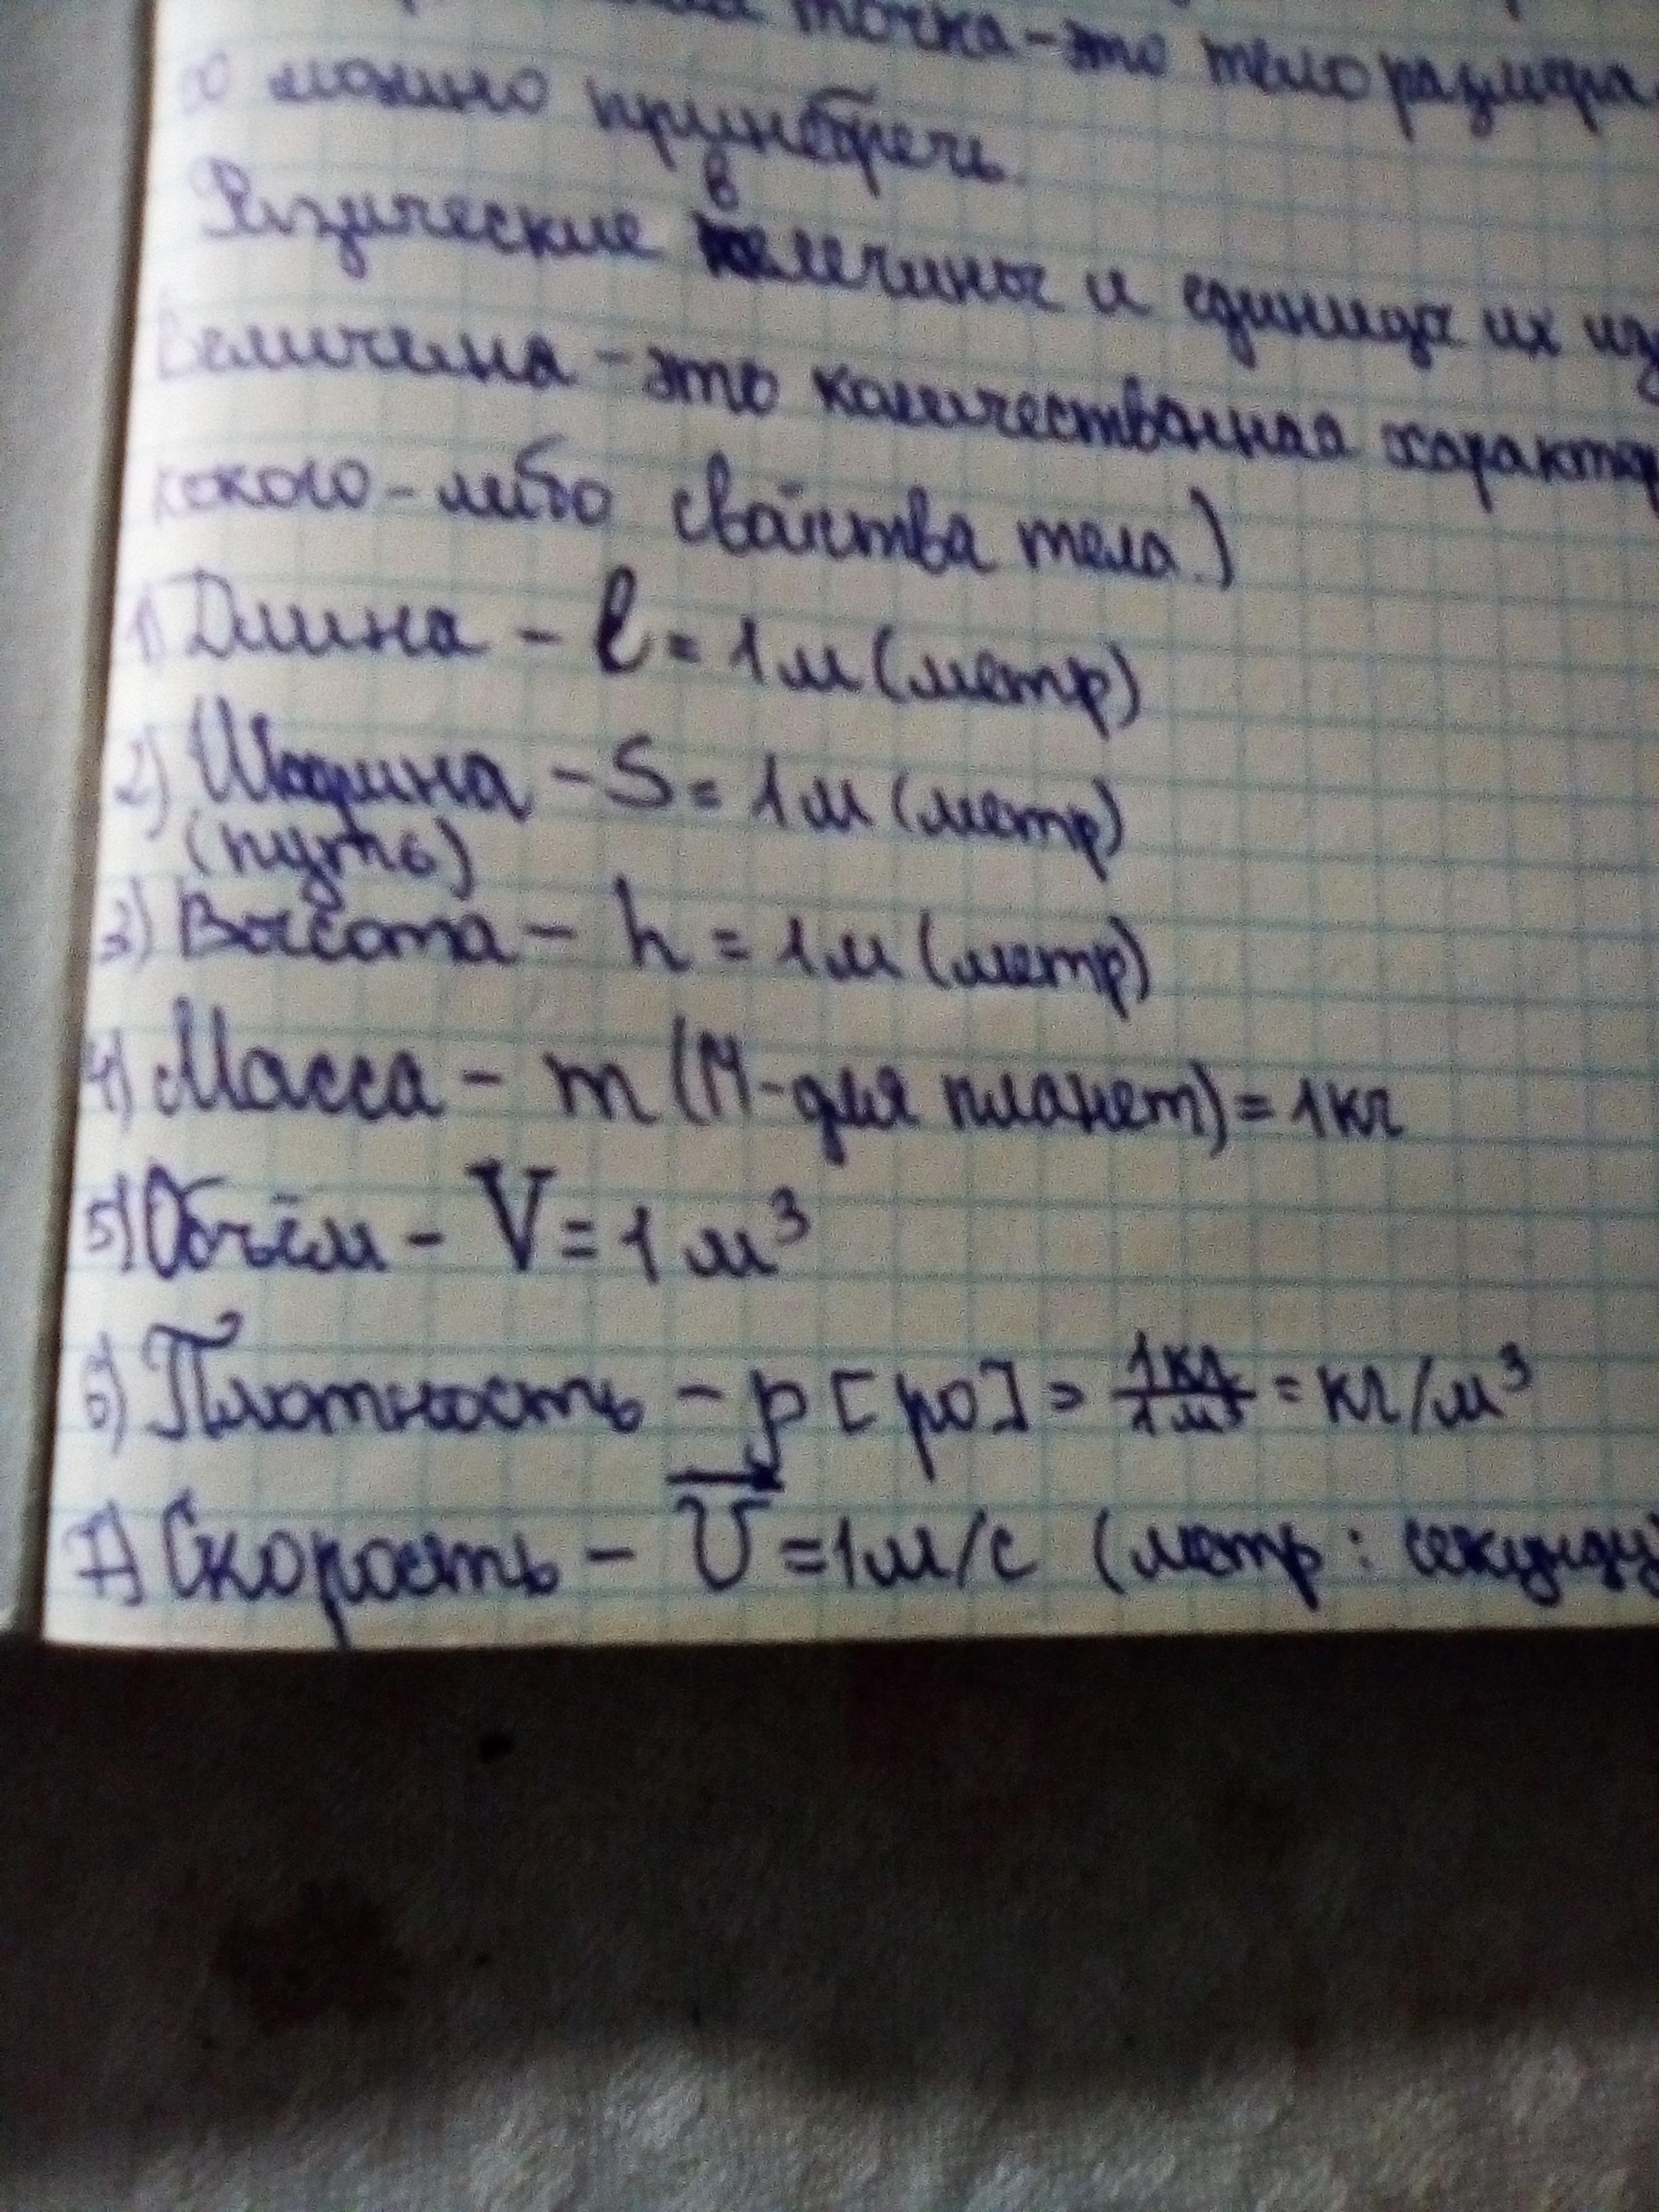 точка - это тело размера
о можно принебречь
Физические величины и единица их из
Величина - это количественная характер
какого-либо свойства тела.)
1) Длина - l = 1 м (метр)
2) Ширина - S = 1 м (метр)
(путь)
3) Высота - h = 1 м (метр)
4) Масса - m (М-для планет) = 1 кг
5) Объём - V = 1 м³
6) Плотность - p [ро] = 1кг/1м³ = кг/м³
7) Скорость - v⃗ = 1 м/с (метр : секунду)